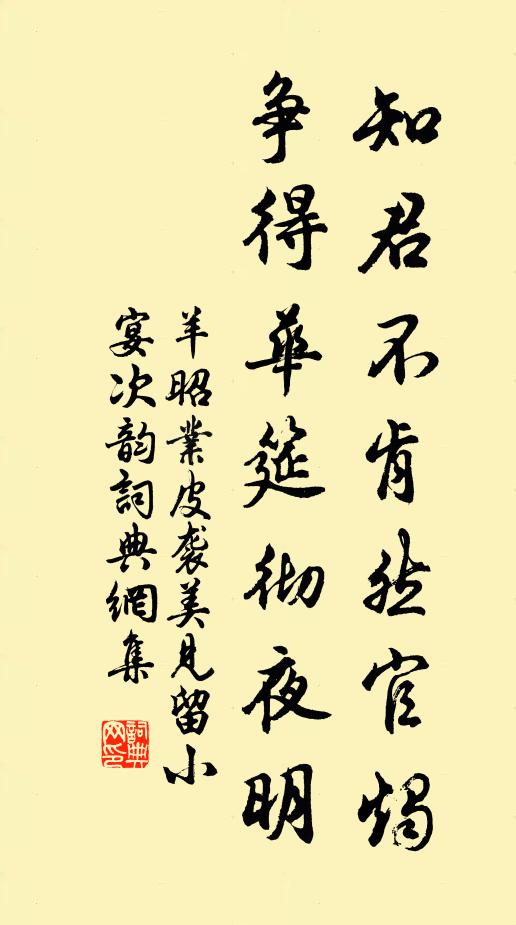 知君不肯然官燭
争得華筵彻夜明
羊昭業皮袭美見留小
宴次韵詞典網集
詞典网印